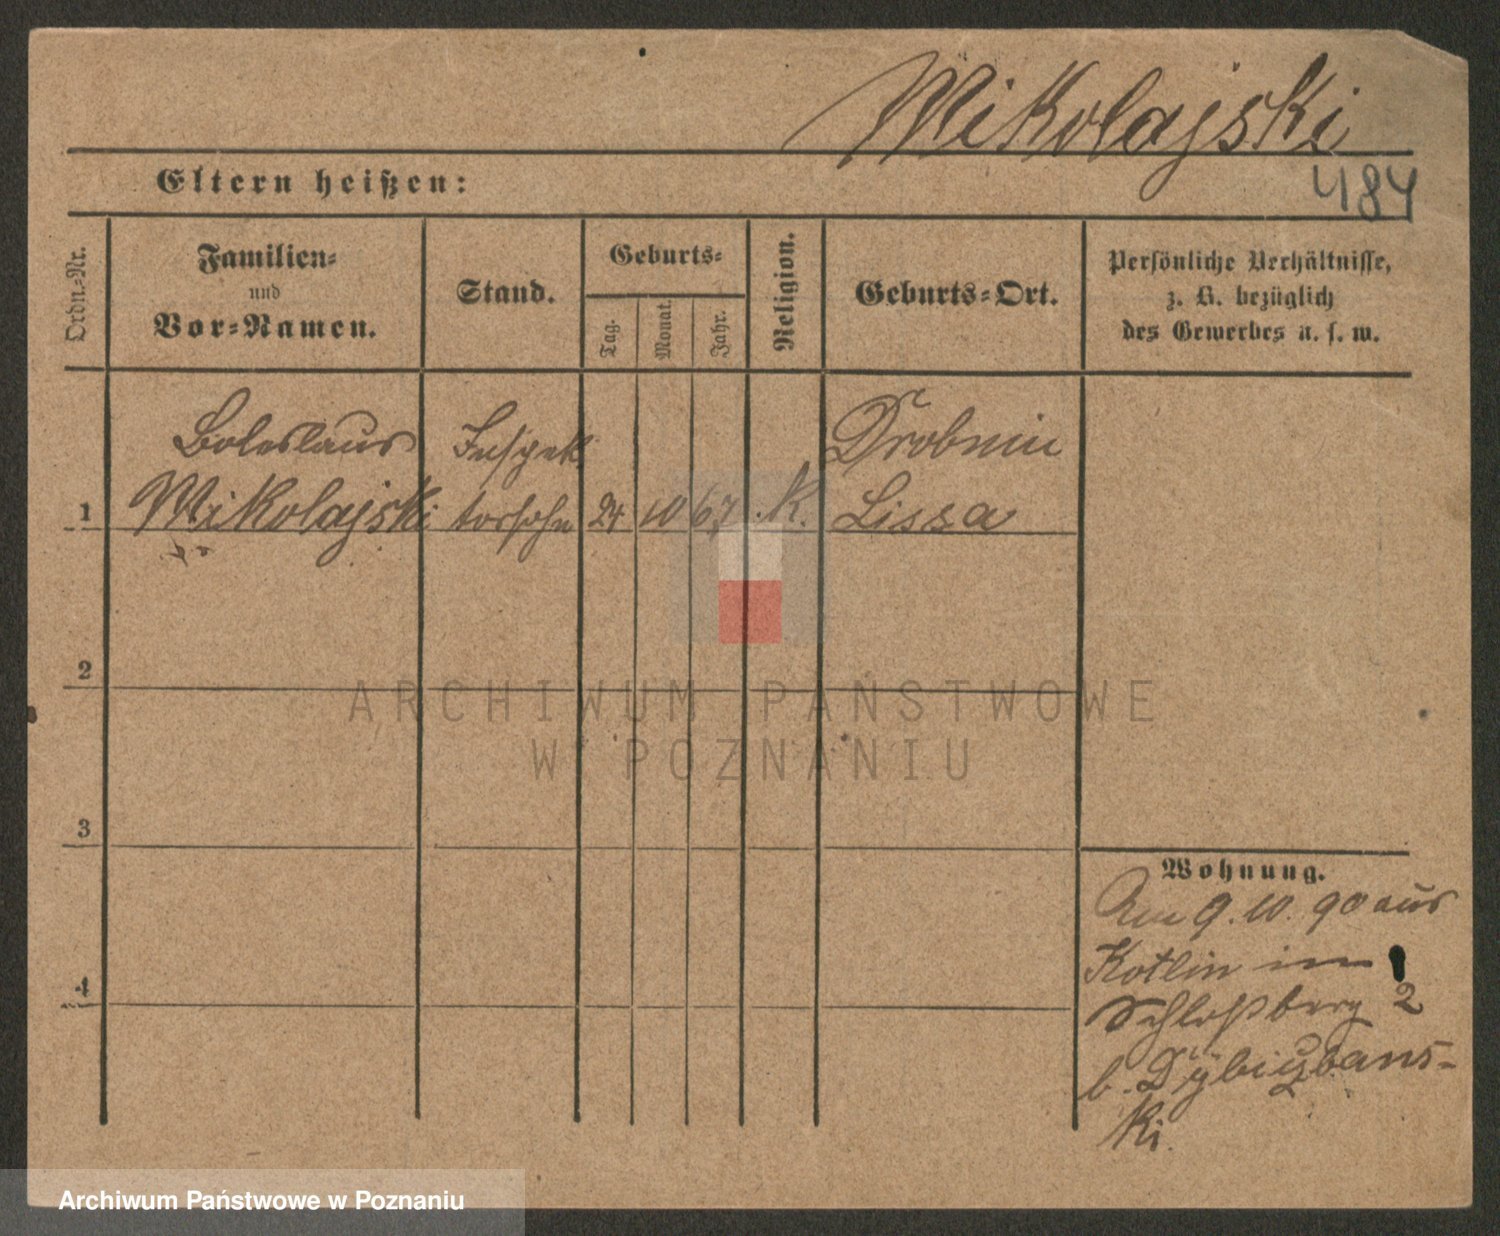 Mikolajski
484
Eltern heißen:
Ordn.-Nr.
Familien-
und
Vor-Namen.
Stand.
Geburts-
Tag.
Monat.
Jahr.
Religion.
Geburts-Ort.
Persönliche Verhältnisse,
z. B. bezüglich
des Gewerbes u. s. w.
Boleslaus Inspek Drobnin
1 Mikolajski torsohn 24 10 67 K. Lissa
2
3
4
Wohnung.
Am 9. 10. 90 aus
Kotlin
Schloßberg 2
b.
ki.
ARCHIWUM PAŃSTWOWE
W POZNANIU
Archiwum Państwowe w Poznaniu